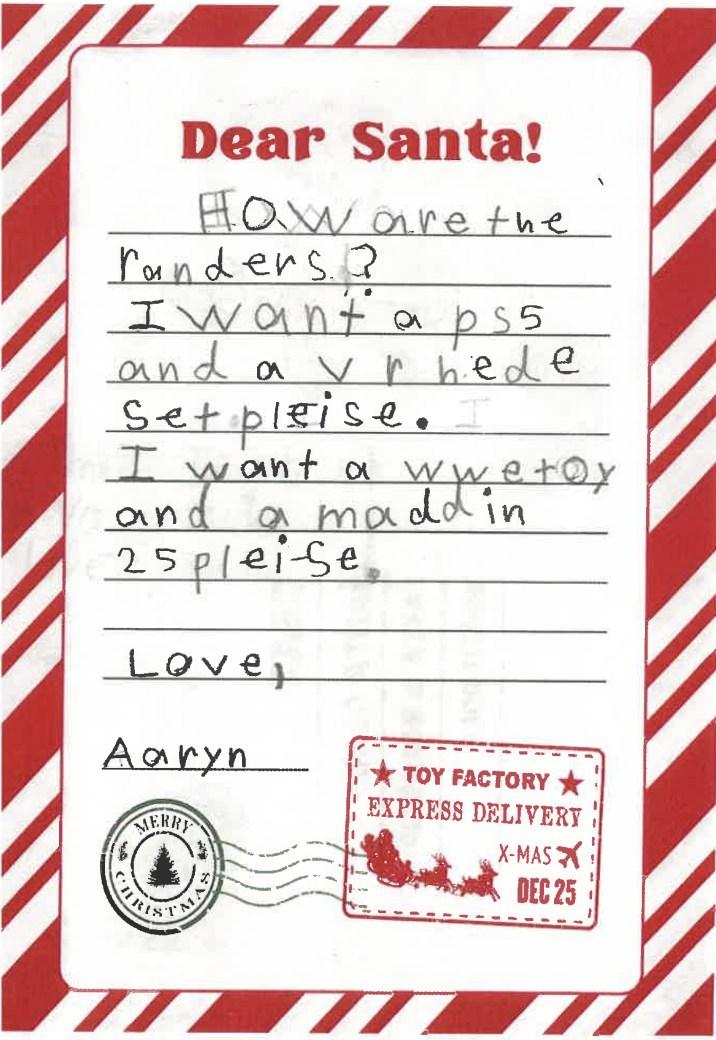 Dear Santa!
How are the
randers.?
I want a ps5
and a vr hede
set pleise.
I want a wwe toy
and a maddin
25 pleise.
Love,
Aaryn
★ TOY FACTORY ★
EXPRESS DELIVERY
X-MAS
DEC 25
MERRY
CHRISTMAS